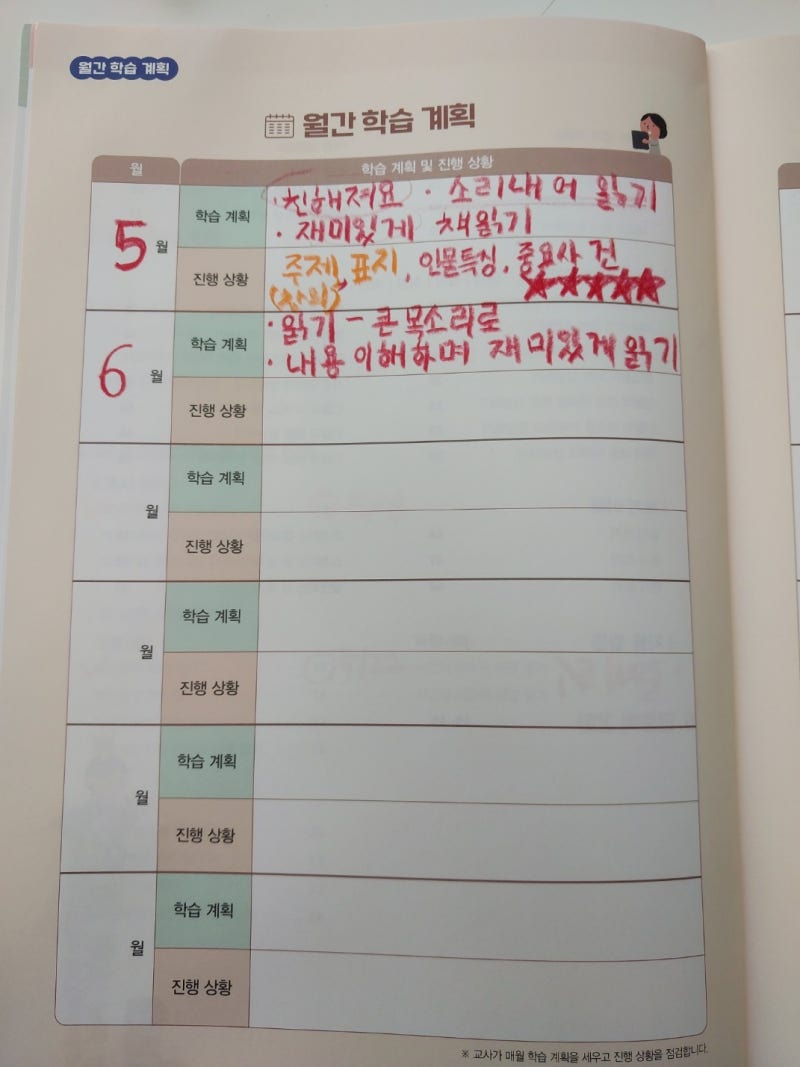 월간 학습 계획
월간 학습 계획
월 학습 계획 및 진행 상황
5월 학습 계획 · 친해져요 · 소리내어 읽기
· 재미있게 책읽기
진행 상황 주제, 표지, 인물특징, 중요사건
★★★★★
6월 학습 계획 · 읽기 - 큰 목소리로
· 내용 이해하며 재미있게 읽기
진행 상황
월 학습 계획
진행 상황
월 학습 계획
진행 상황
월 학습 계획
진행 상황
월 학습 계획
진행 상황
※ 교사가 매월 학습 계획을 세우고 진행 상황을 점검합니다.